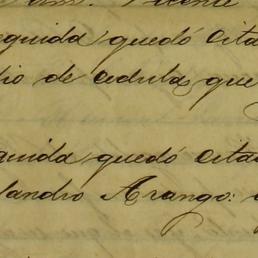 Vicente
eguida quedó cita
dio de cedula, que
guida quedó cita
landro Arango: